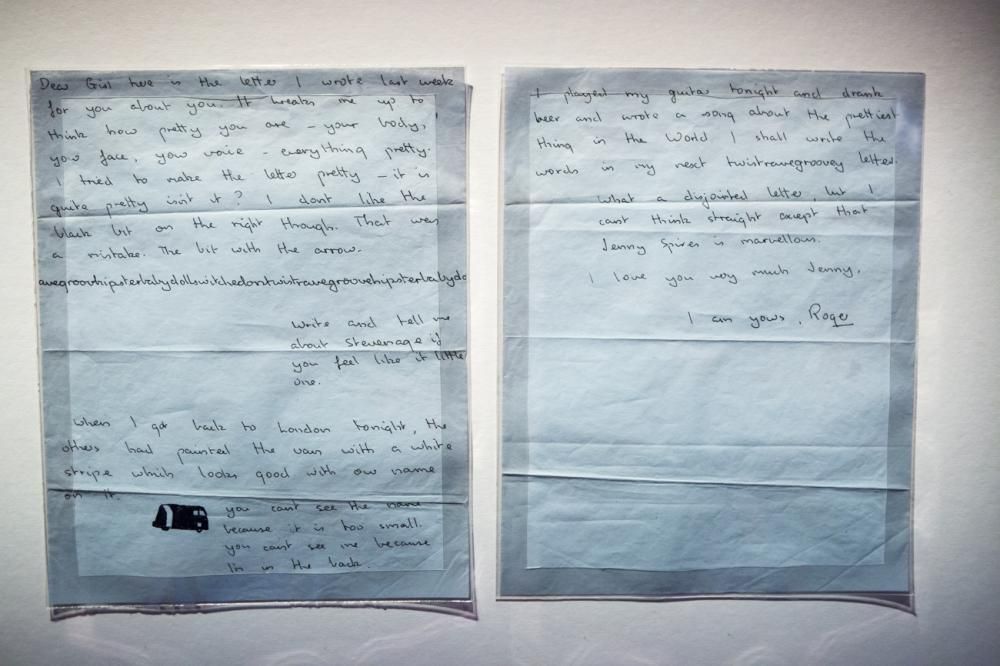 Dear Girl here is the letter I wrote last week
for you about you. It breaks me up to
think how pretty you are – your body,
your face, your voice – everything pretty.
I tried to make the letter pretty – it is
quite pretty isnt it? I dont like the
black bit on the right though. That was
a mistake. The bit with the arrow.
avegroovhipsterbabydollswitchedontwistravegroovehipsterbabydo
Write and tell me
about Stevenage if
you feel like it little
one.
When I got back to London tonight, the
others had painted the van with a white
stripe which looks good with our name
on it.
you cant see the name
because it is too small.
you cant see me because
I'm in the back.
I played my guitar tonight and drank
beer and wrote a song about the prettiest
thing in the World I shall write the
words in my next twistravegroovey letter.
What a disjointed letter, but I
cant think straight except that
Jenny Spires is marvellous.
I love you very much Jenny,
I am yours, Roger